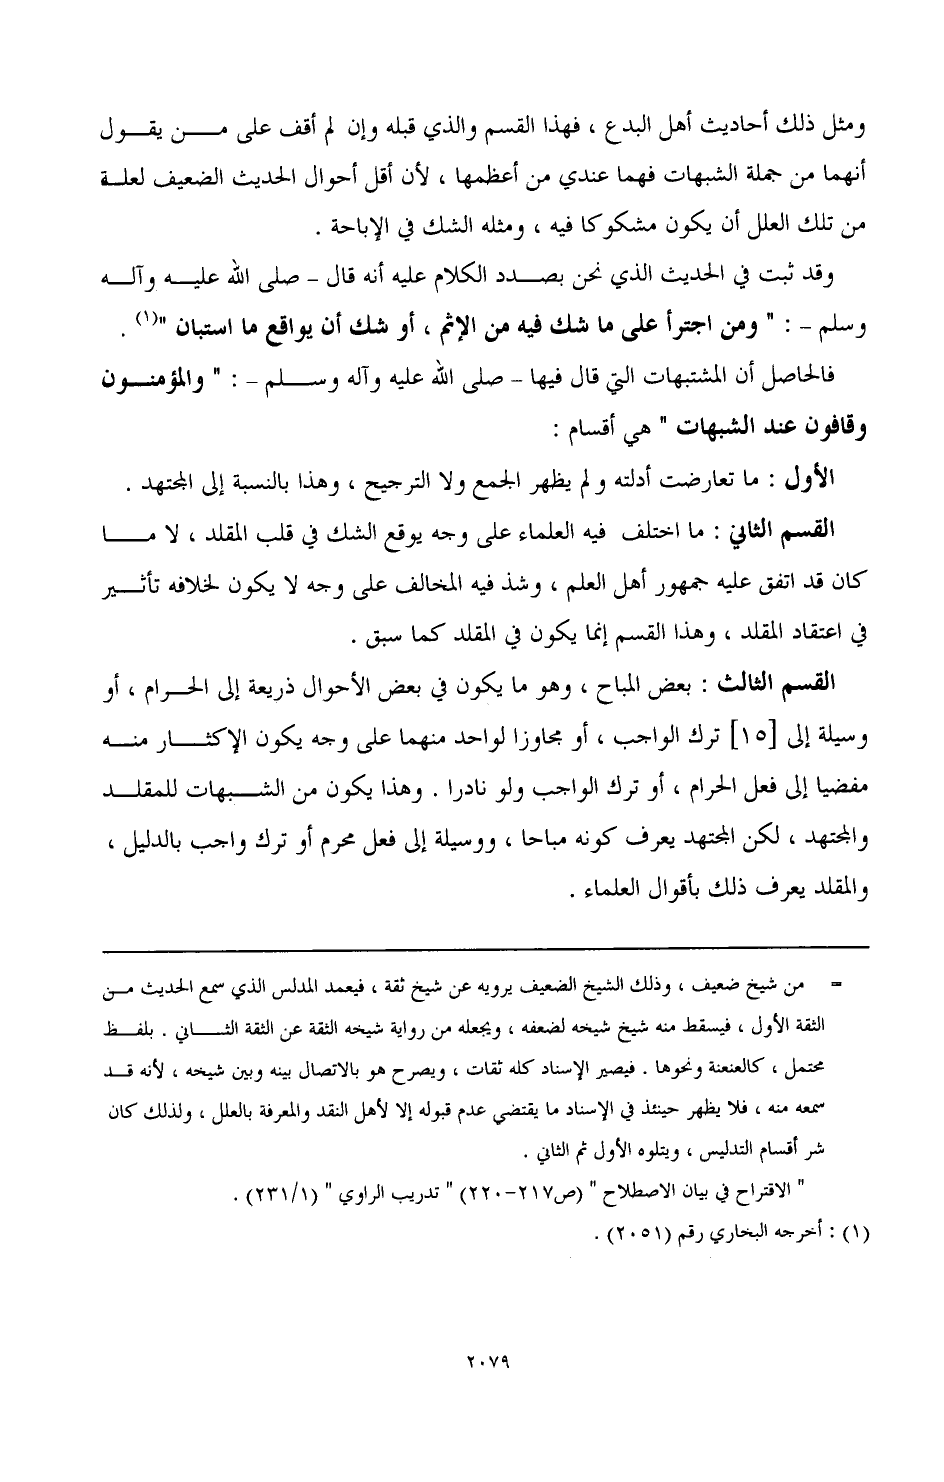 ومثل ذلك أحاديث أهل البدع ، فهذا القسم والذي قبله وإن لم أقف على من يقول
أنهما من جملة الشبهات فهما عندي من أعظمها ، لأن أقل أحوال الحديث الضعيف لعلة
من تلك العلل أن يكون مشكوكا فيه ، ومثله الشك في الإباحة .
وقد ثبت في الحديث الذي نحن بصدد الكلام عليه أنه قال – صلى الله عليه وآله
وسلم – : " ومن اجترأ على ما شك فيه من الإثم ، أو شك أن يواقع ما استبان "(١) .
فالحاصل أن المشتبهات التي قال فيها – صلى الله عليه وآله وسلم – : " والمؤمنون
وقافون عند الشبهات " هي أقسام :
الأول : ما تعارضت أدلته و لم يظهر الجمع ولا الترجيح ، وهذا بالنسبة إلى المجتهد .
القسم الثاني : ما اختلف فيه العلماء على وجه يوقع الشك في قلب المقلد ، لا ما
كان قد اتفق عليه جمهور أهل العلم ، وشذ فيه المخالف على وجه لا يكون لخلافه تأثير
في اعتقاد المقلد ، وهذا القسم إنما يكون في المقلد كما سبق .
القسم الثالث : بعض المباح ، وهو ما يكون في بعض الأحوال ذريعة إلى الحرام ، أو
وسيلة إلى [١٥] ترك الواجب ، أو مجاوزا لواحد منهما على وجه يكون الإكثار منه
مفضيا إلى فعل الحرام ، أو ترك الواجب ولو نادرا . وهذا يكون من الشبهات للمقلد
والمجتهد ، لكن المجتهد يعرف كونه مباحا ، ووسيلة إلى فعل محرم أو ترك واجب بالدليل ،
والمقلد يعرف ذلك بأقوال العلماء .
= من شيخ ضعيف ، وذلك الشيخ الضعيف يرويه عن شيخ ثقة ، فيعمد المدلس الذي سمع الحديث من
الثقة الأول ، فيسقط منه شيخ شيخه لضعفه ، ويجعله من رواية شيخه الثقة عن الثقة الثاني . بلفظ
محتمل ، كالعنعنة ونحوها . فيصير الإسناد كله ثقات ، ويصرح هو بالاتصال بينه وبين شيخه ، لأنه قد
سمعه منه ، فلا يظهر حينئذ في الإسناد ما يقتضي عدم قبوله إلا لأهل النقد والمعرفة بالعلل ، ولذلك كان
شر أقسام التدليس ، ويتلوه الأول ثم الثاني .
" الاقتراح في بيان الاصطلاح " (ص٢١٧–٢٢٠) " تدريب الراوي " (٢٣١/١) .
(١) : أخرجه البخاري رقم (٢٠٥١) .
٢٠٧٩